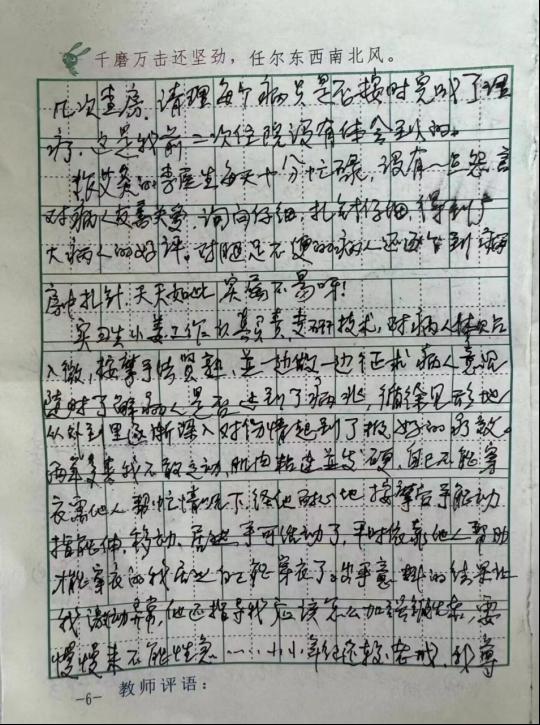 千磨万击还坚劲，任尔东西南北风。
几次查房、清理每个病员是否按时完成了理
疗，这是我前二次住院没有体会到的。
扎艾灸的李医生每天十分忙碌，没有一点怨言
对病人友善关爱，询问仔细，扎针仔细，得到广
大病人的好评。对腿足不便的病人还送针到病
房中扎针 天天如此 实属不易呀！
实习生小姜工作认真负责，专研技术，对病人体贴
入微，按摩手法娴熟，并一边做一边征求病人意见
随时了解病人是否达到了病 ，循徐见形地
从外到里逐渐深入对伤情起到了很好的疗效。
两年多来我不敢运动，肌肉粘连并发硬，自己不能穿
衣需他人帮忙情况下，经他耐心地按摩后手能动
指能伸、移动、居然手可活动了，平时依靠他人帮助
才能穿衣的我居然自己能穿衣了。出乎意料的结果让
我激动异常，他还指导我应该怎么加强锻炼，要
慢慢来不能性急……小小年纪 ，我尊
-6- 教师评语：